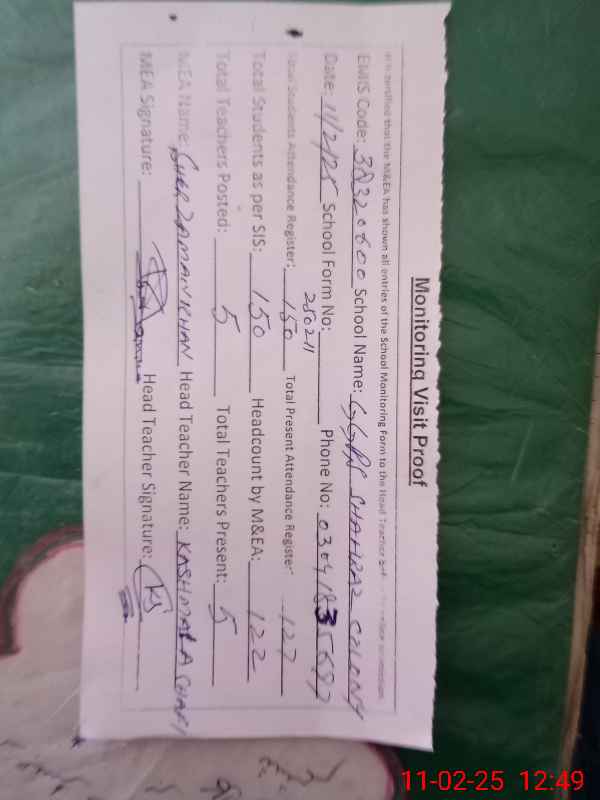 Monitoring Visit Proof
It is certified that the M&EA has shown all entries of the School Monitoring Form to the Head Teacher
EMIS Code: 38320600 School Name: GGPS SHAHBAZ COLONY
Date: 11/2/25 School Form No: 250211 Phone No: 03041835687
Total Students Attendance Register: 150 Total Present Attendance Register: 127
Total Students as per SIS: 150 Headcount by M&EA: 122
Total Teachers Posted: 5 Total Teachers Present: 5
MEA Name: SHER ZAMAN KHAN Head Teacher Name: KASHMALA SHAFI
MEA Signature: Head Teacher Signature: KS
11-02-25 12:49